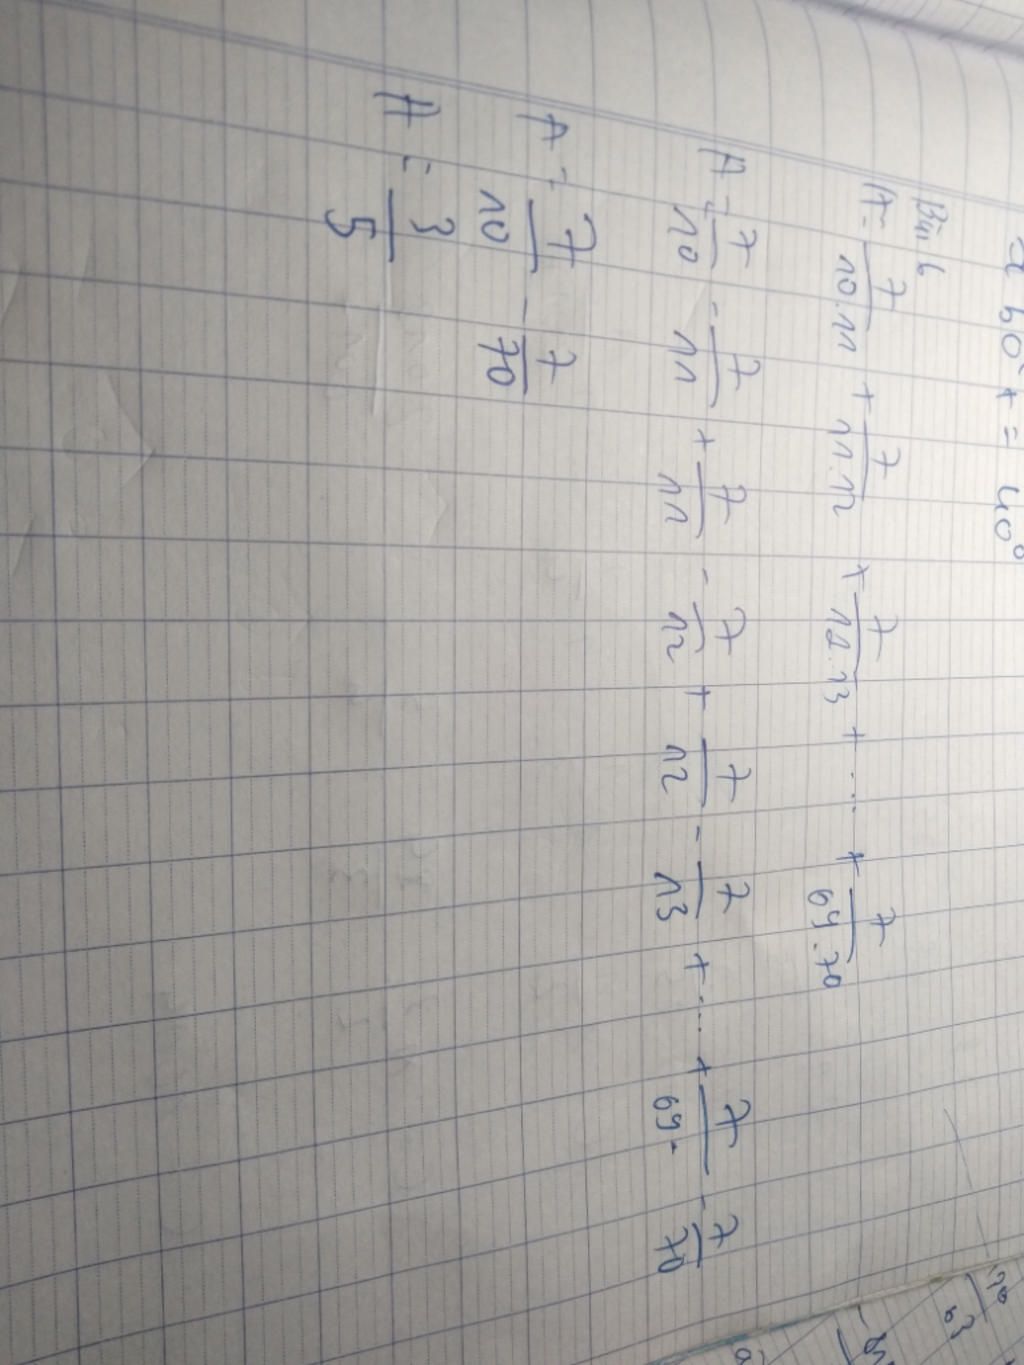 Bài 6
A = 7/10.11 + 7/11.12 + 7/12.13 + ... + 7/69.70
A = 7/10 - 7/11 + 7/11 - 7/12 + 7/12 - 7/13 + ... + 7/69 - 7/70
A = 7/10 - 7/70
A = 3/5